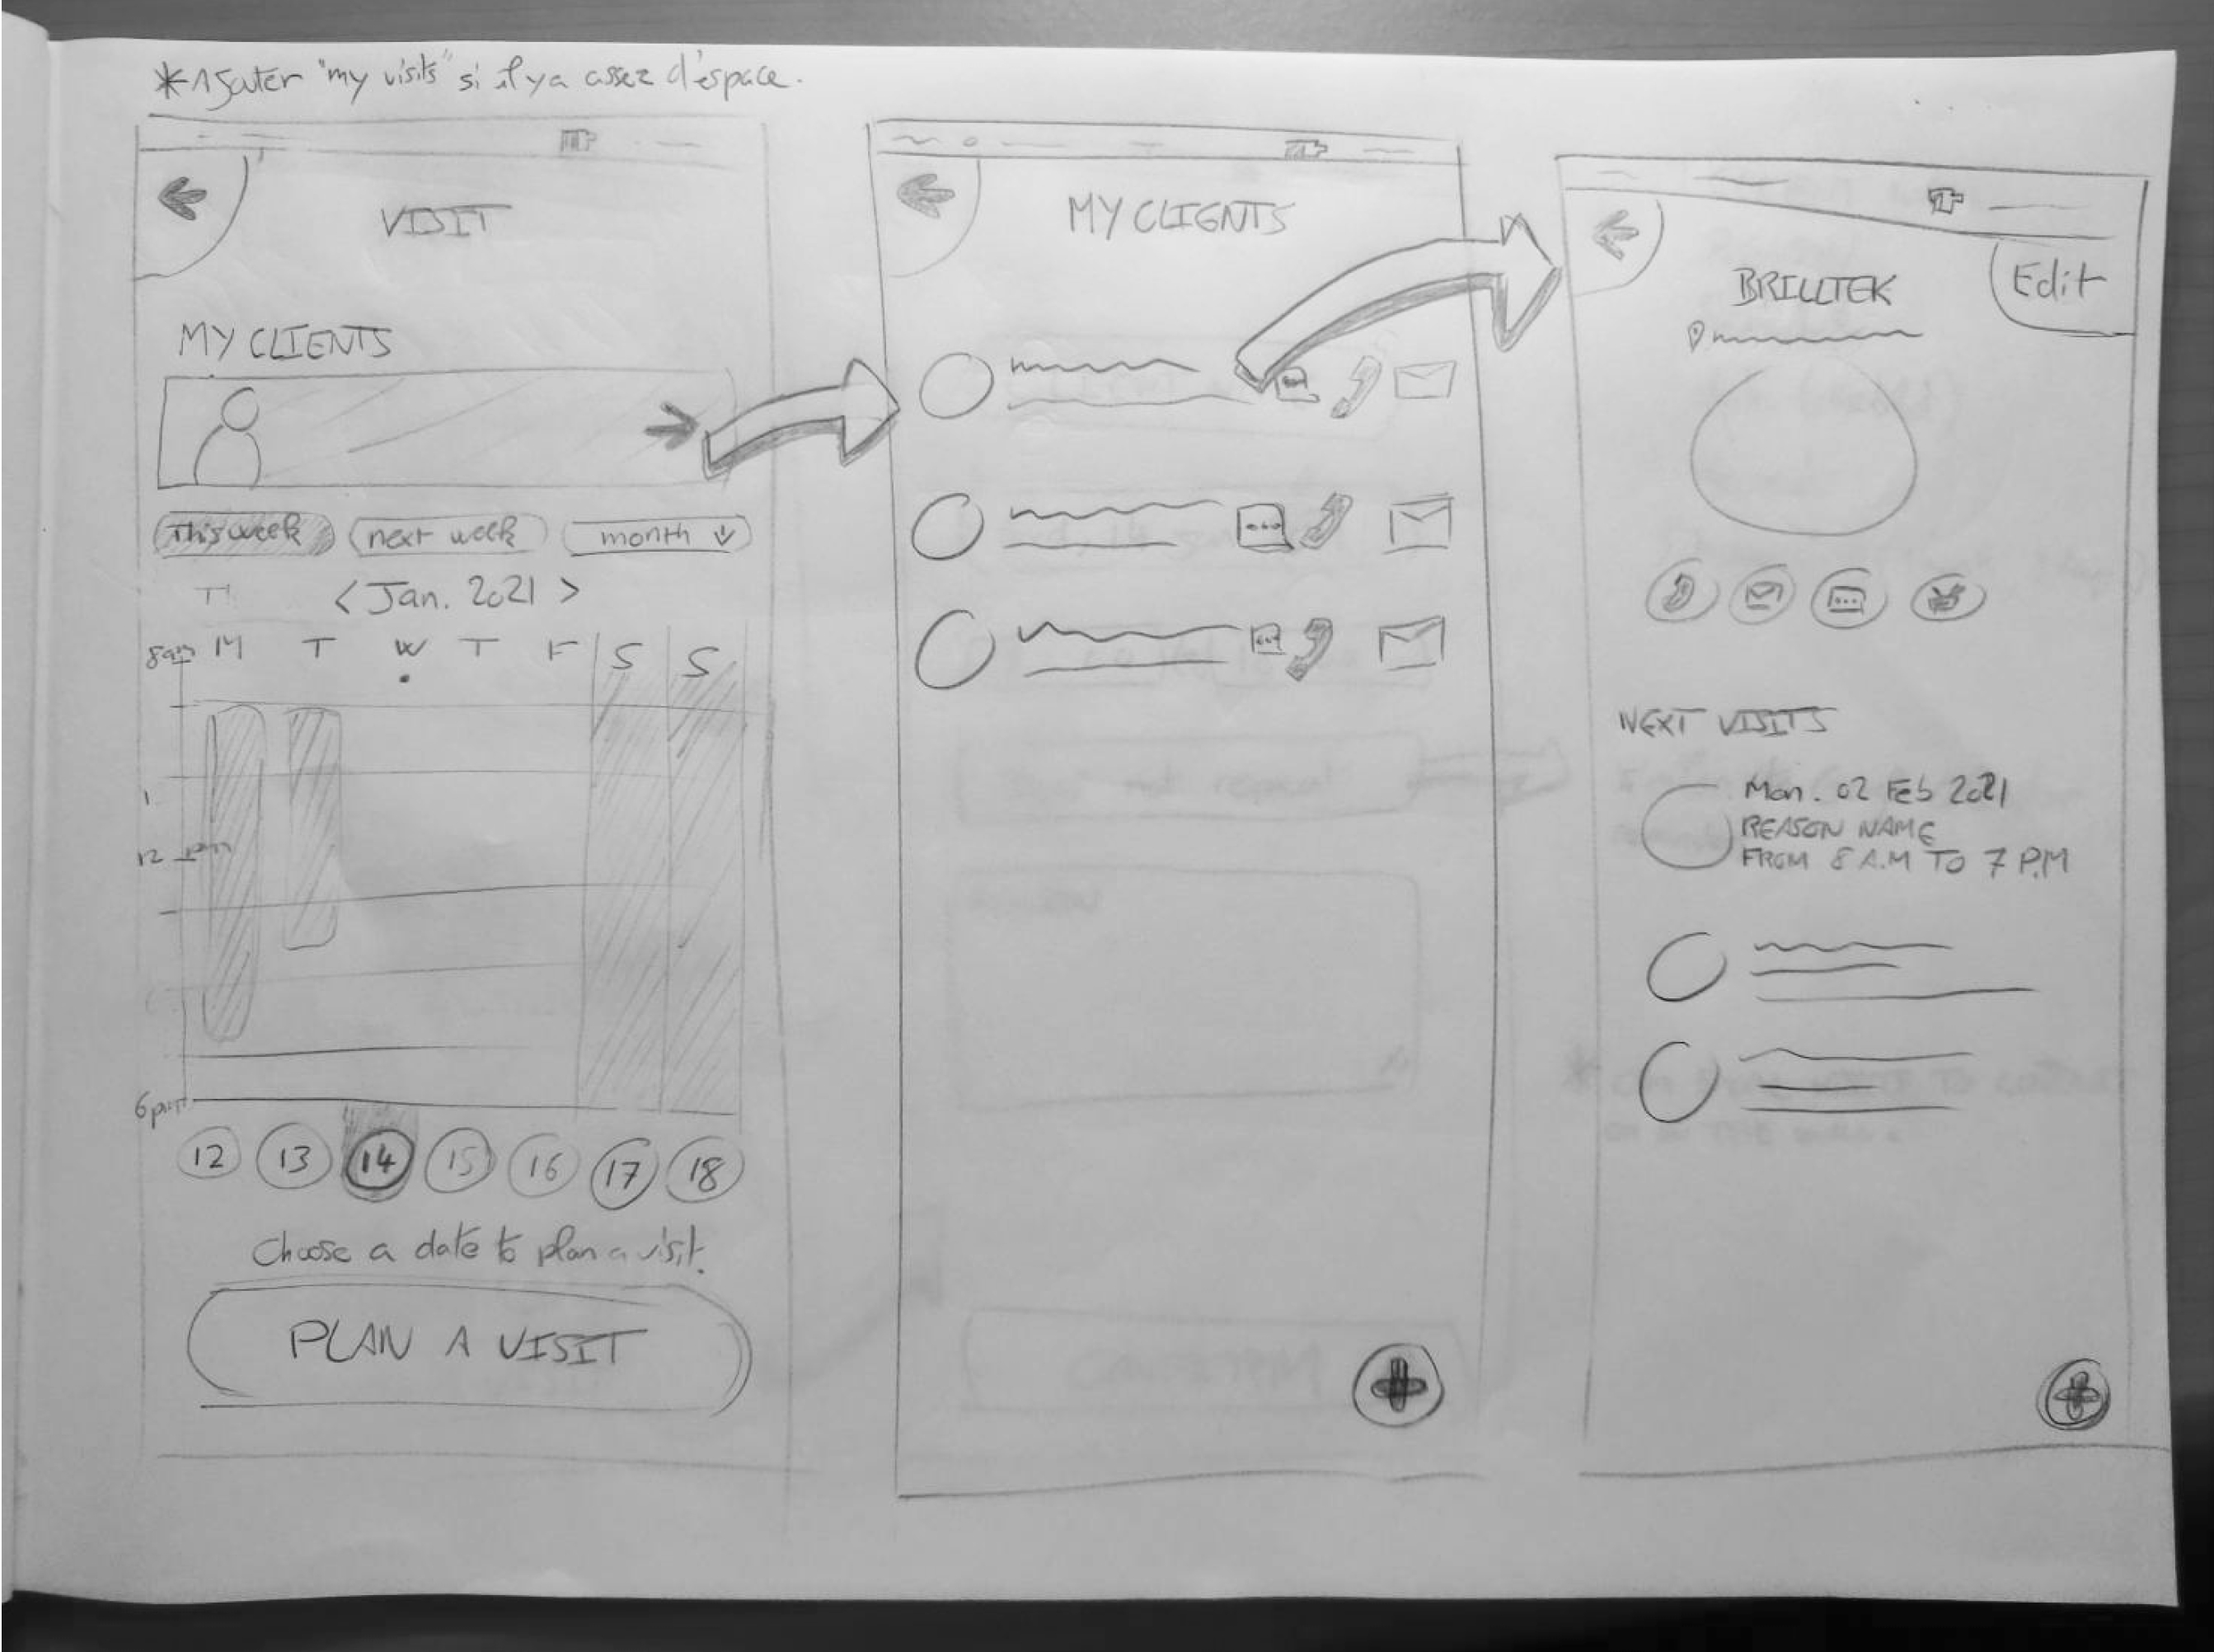 *Ajouter "my visits" si il y a assez d'espace.
VISIT
MY CLIENTS
This week
next week
month
< Jan. 2021 >
8am M T W T F S S
12 pm
6pm
12 13 14 15 16 17 18
Choose a date to plan a visit.
PLAN A VISIT
MY CLIENTS
Edit
BRILLTEK
NEXT VISITS
Mon. 02 Feb 2021
REASON NAME
FROM 8 A.M TO 7 P.M